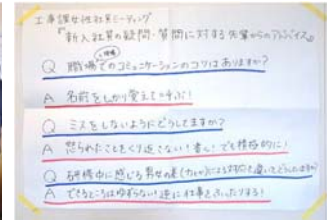 工事課女性社員ミーティング
『新入社員の疑問・質問に対する先輩からのアドバイス』
Q 職場でのコミュニケーションのコツはありますか?
A 名前をしっかり覚えて呼ぶ!
Q ミスをしないようにどうしてますか?
A 怒られたことをくり返さない!書く!でも積極的に!
Q 研修中に感じる男女の差
A できるところはゆずらない!逆に仕事を